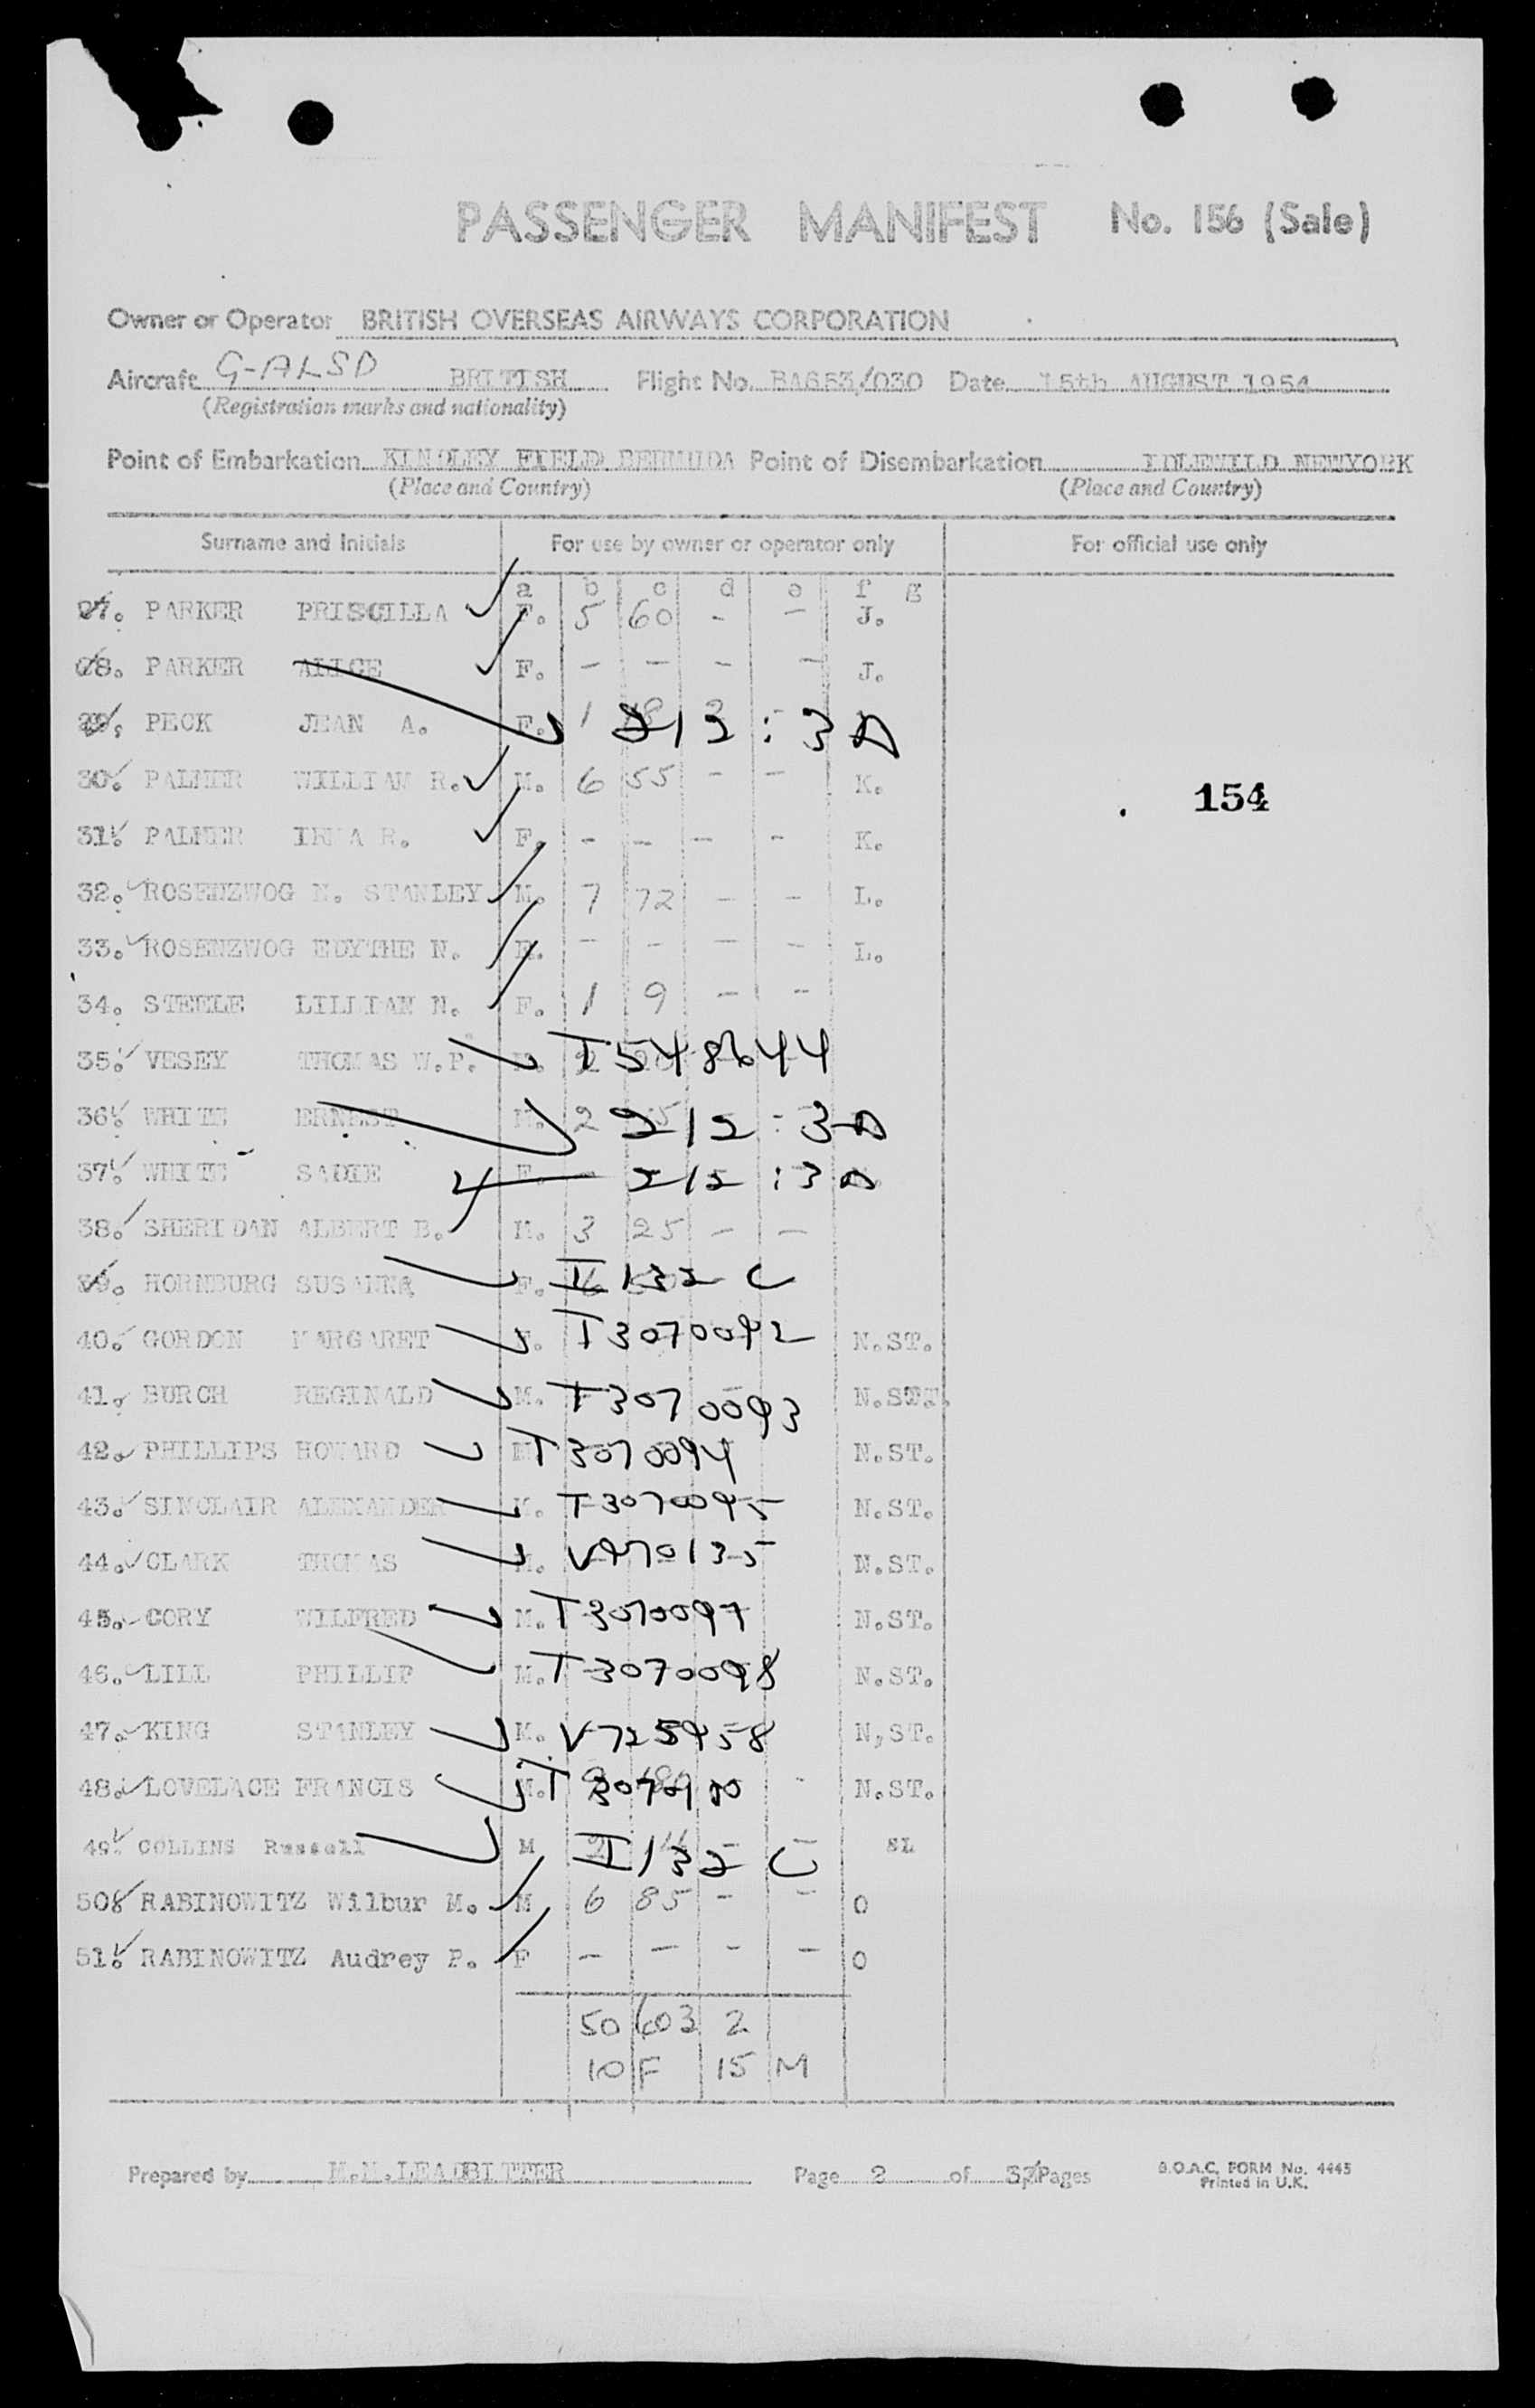 PASSENGER MANIFEST No. 156 (Sale)
Owner or Operator BRITISH OVERSEAS AIRWAYS CORPORATION
Aircraft G-ALSD BRITISH Flight No. BA653/030 Date 15th AUGUST 1954
(Registration marks and nationality)
Point of Embarkation KINDLEY FIELD BERMUDA Point of Disembarkation IDLEWILD NEWYORK
(Place and Country) (Place and Country)
Surname and Initials For use by owner or operator only For official use only
a b c d e f g
27. PARKER PRISCILLA F. 5 60 - - J.
28. PARKER ALICE F. - - - - J.
29. PECK JEAN A. F. 1 212 : 3 A
30. PALMER WILLIAM R. M. 6 55 - - K.
154
31. PALMER IRMA R. F. - - - - K.
32. ROSENZWOG N. STANLEY M. 7 72 - - L.
33. ROSENZWOG EDYTHE N. F. - - - - L.
34. STEELE LILLIAN N. F. 1 9 - -
35. VESEY THOMAS W.P. T548644
36. WHITE ERNEST M. 2 212 : 3A
37. WHITE SADIE F. - 212 : 3A
38. SHERIDAN ALBERT B. M. 3 25 - -
39. HORNBURG F. I 132 C
40. GORDON MARGARET F. T3070092 N.ST.
41. BURCH REGINALD M. T3070093 N.ST.
42. PHILLIPS HOWARD T3070094 N.ST.
43. SINCLAIR ALEXANDER M. T3070095 N.ST.
44. CLARK THOMAS M. V970135 N.ST.
45. CORY WILFRED M. T3070097 N.ST.
46. LILL PHILLIP M. T3070098 N.ST.
47. KING STANLEY M. V725958 N,ST.
48. LOVELACE FRANCIS M. N.ST.
49. COLLINS Russell M I 132 C SL
50. RABINOWITZ Wilbur M. M 6 85 - - O
51. RABINOWITZ Audrey P. F - - - - O
50 603 2
10 F 15 M
Prepared by M.M.LEADBITTER Page 2 of Pages B.O.A.C. FORM No. 4445
Printed in U.K.